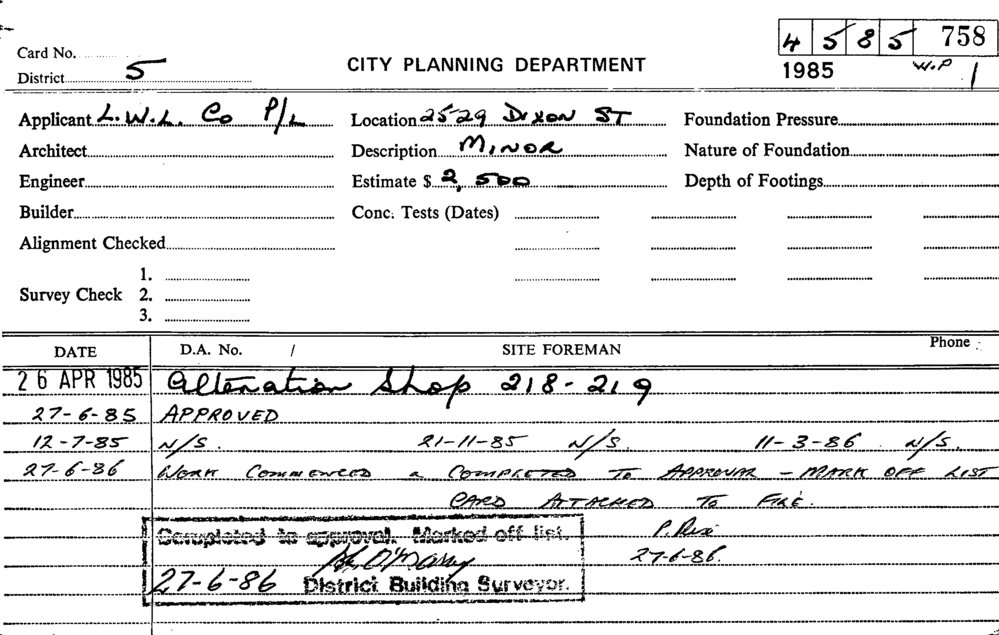 4 5 8 5 758
Card No.
District 5
CITY PLANNING DEPARTMENT
1985 W.P 1
Applicant L.W.L. Co P/L Location 25-29 Dixon ST Foundation Pressure
Architect Description MINOR Nature of Foundation
Engineer Estimate $ 2,500 Depth of Footings
Builder Conc. Tests (Dates)
Alignment Checked
1.
Survey Check 2.
3.
DATE D.A. No. / SITE FOREMAN Phone
26 APR 1985 Alteration Shop 218-219
27-6-85 APPROVED
12-7-85 N/S. 21-11-85 N/S. 11-3-86 N/S.
27-6-86 WORK COMMENCED & COMPLETED TO APPROVAL - MARK OFF LIST
CARD ATTACHED TO FILE.
Completed to approval. Marked off list.
27-6-86 District Building Surveyor.
27-6-86.